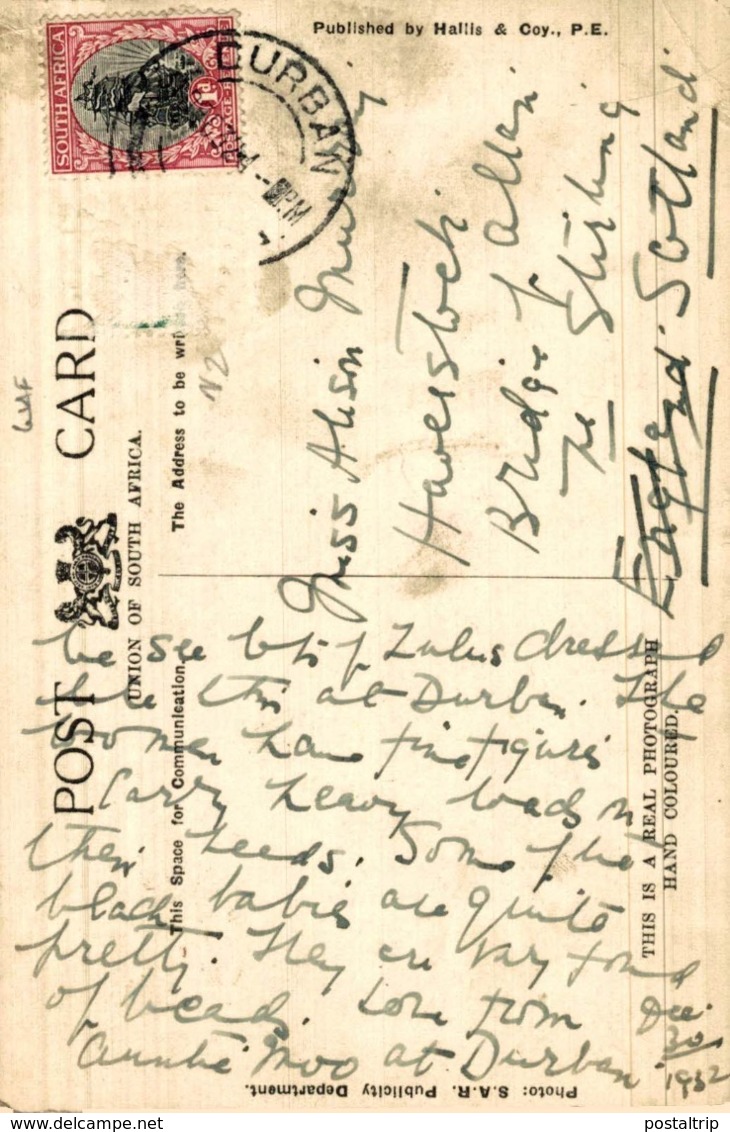 Published by Hallis & Coy., P.E.
SOUTH AFRICA
1d
POSTAGE
DURBAN
PM
POST CARD
UNION OF SOUTH AFRICA.
This Space for Communication.
The Address to be written here.
N2
Miss Alison Murray
Haverstock
Bridge of Allan
Nr Stirling
England Scotland
We see lots of Zulus dressed
like this at Durban. The
women have fine figures
Carry heavy loads on
their heads. Some of the
black babies are quite
pretty. They are very fond
of beads. Love from
Auntie Moo at Durban
Dec.
30
1932
THIS IS A REAL PHOTOGRAPH
HAND COLOURED.
Photo: S.A.R. Publicity Department.
postaltrip
postaltrip.com